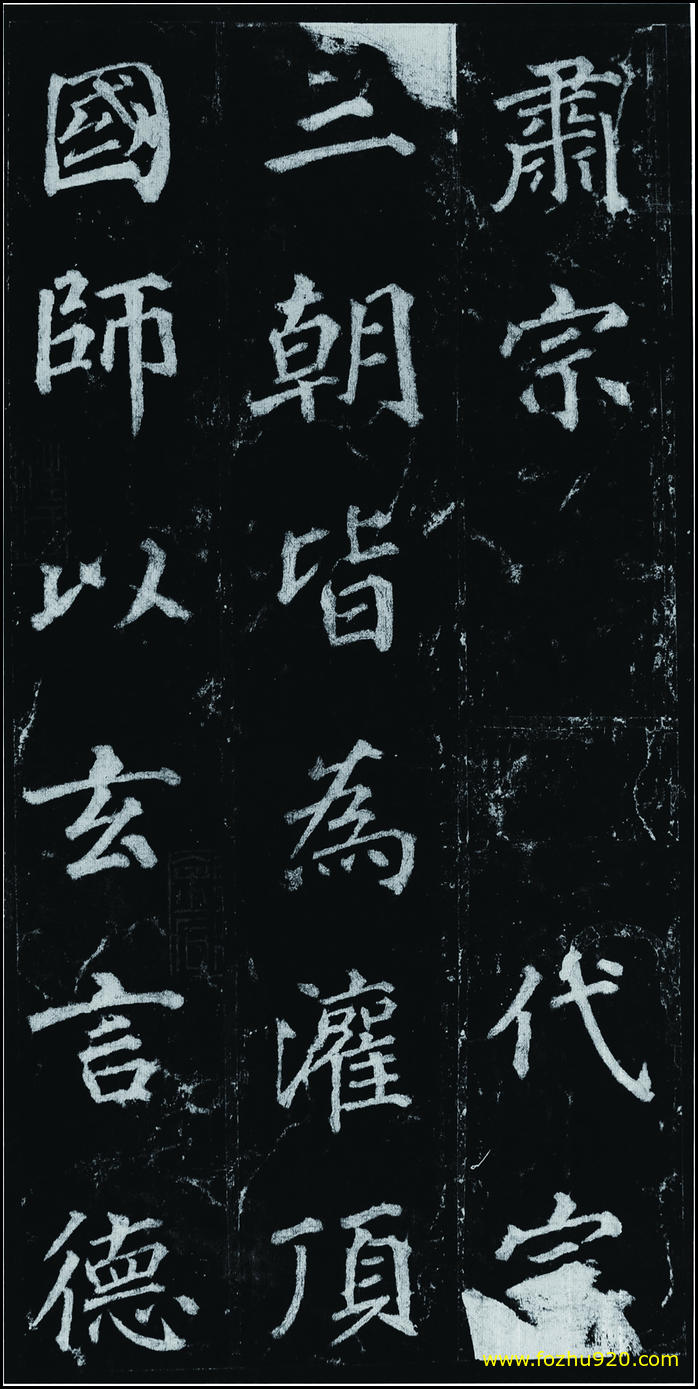 肅宗代宗
三朝皆為灌頂
國師以玄言德
www.fozhu920.com